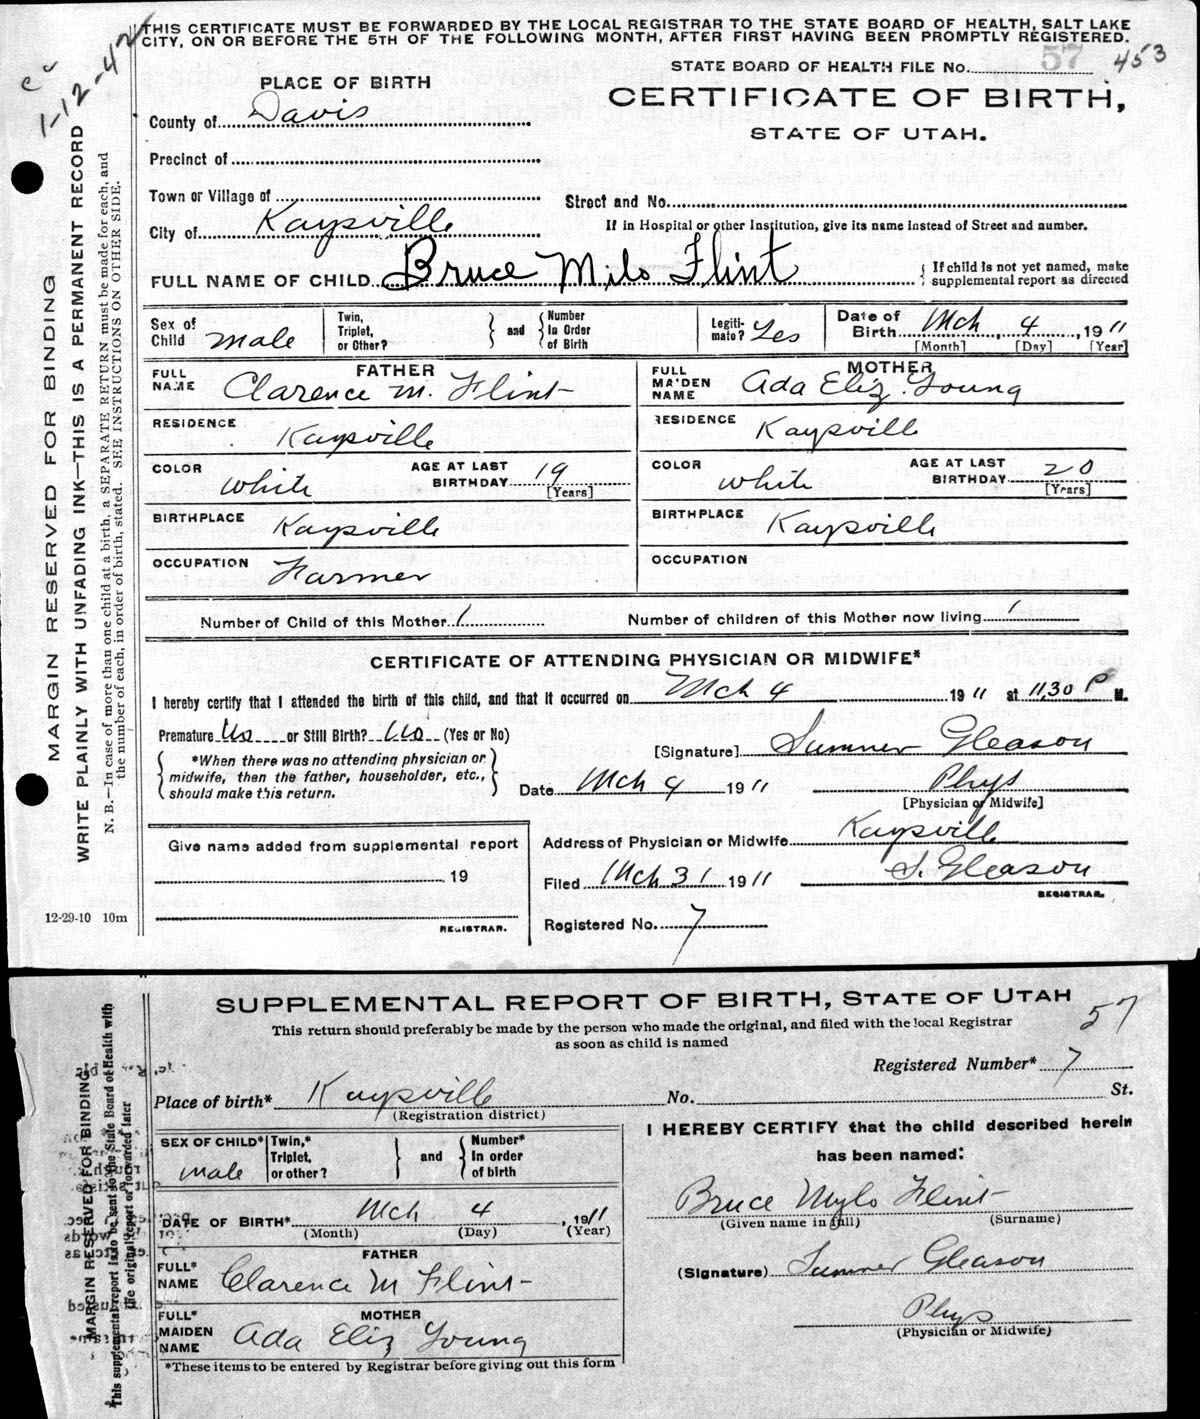 THIS CERTIFICATE MUST BE FORWARDED BY THE LOCAL REGISTRAR TO THE STATE BOARD OF HEALTH, SALT LAKE
CITY, ON OR BEFORE THE 5TH OF THE FOLLOWING MONTH, AFTER FIRST HAVING BEEN PROMPTLY REGISTERED.
1-12-42
MARGIN RESERVED FOR BINDING
WRITE PLAINLY WITH UNFADING INK—THIS IS A PERMANENT RECORD
N. B.—In case of more than one child at a birth, a SEPARATE RETURN must be made for each, and
the number of each, in order of birth, stated. SEE INSTRUCTIONS ON OTHER SIDE.
12-29-10 10m
STATE BOARD OF HEALTH FILE No. 57 453
PLACE OF BIRTH
CERTIFICATE OF BIRTH,
STATE OF UTAH.
County of Davis
Precinct of
Town or Village of
Street and No.
City of Kaysville
If in Hospital or other Institution, give its name instead of Street and number.
FULL NAME OF CHILD Bruce Milo Flint
{ If child is not yet named, make
supplemental report as directed
Sex of Child male
Twin, Triplet, or Other? } and { Number In Order of Birth
Legiti- mate? Yes
Date of Birth Mch 4, 1911
[Month] [Day] [Year]
FATHER
FULL NAME Clarence M. Flint
MOTHER
FULL MAIDEN NAME Ada Eliz. Young
RESIDENCE Kaysville
RESIDENCE Kaysville
COLOR white AGE AT LAST BIRTHDAY 19 [Years]
COLOR white AGE AT LAST BIRTHDAY 20 [Years]
BIRTHPLACE Kaysville
BIRTHPLACE Kaysville
OCCUPATION Farmer
OCCUPATION
Number of Child of this Mother 1
Number of children of this Mother now living 1
CERTIFICATE OF ATTENDING PHYSICIAN OR MIDWIFE*
I hereby certify that I attended the birth of this child, and that it occurred on Mch 4 1911 at 11,30 P M.
Premature No or Still Birth? No (Yes or No)
[Signature] Sumner Gleason
{ *When there was no attending physician or
midwife, then the father, householder, etc.,
should make this return. }
Date Mch 4 1911
Phys
[Physician or Midwife]
Give name added from supplemental report
19
REGISTRAR.
Address of Physician or Midwife Kaysville
Filed Mch 31 1911 S. Gleason
REGISTRAR.
Registered No. 7
SUPPLEMENTAL REPORT OF BIRTH, STATE OF UTAH
57
This return should preferably be made by the person who made the original, and filed with the local Registrar
as soon as child is named
MARGIN RESERVED FOR BINDING
This supplemental report is to be sent to the State Board of Health with
the original report or forwarded later
Registered Number* 7
Place of birth* Kaysville No. St.
(Registration district)
SEX OF CHILD* male
Twin,* Triplet, or other? } and { Number* In order of birth
DATE OF BIRTH* Mch 4, 1911
(Month) (Day) (Year)
FATHER
FULL* NAME Clarence M Flint
MOTHER
FULL* MAIDEN NAME Ada Eliz Young
*These items to be entered by Registrar before giving out this form
I HEREBY CERTIFY that the child described herein
has been named:
Bruce Mylo Flint
(Given name in full) (Surname)
(Signature) Sumner Gleason
Phys
(Physician or Midwife)